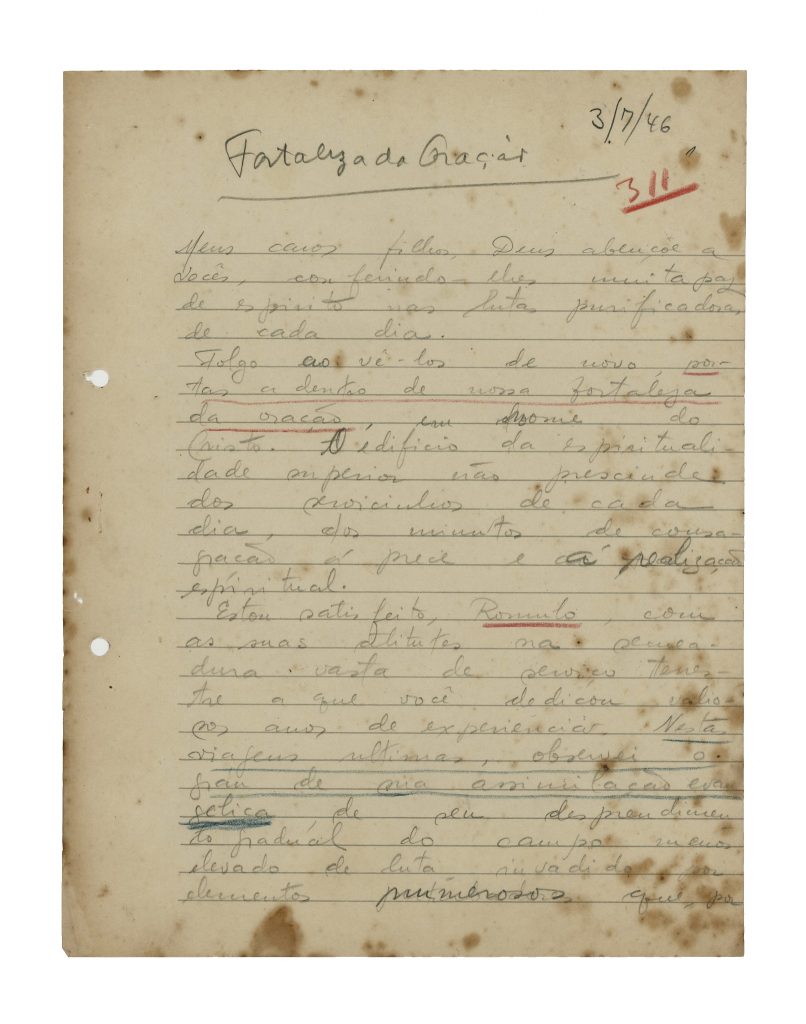 3/7/46
Fortaleza da Oração
311
Meus caros filhos, Deus abençoe a
vocês, conferindo-lhes muita paz
de espirito nas lutas purificadoras
de cada dia.
Folgo ao vê-los de novo, por-
tas a dentro de nossa fortaleza
da oração, em nome do
Cristo. O edificio da espirituali-
dade superior não prescinde
dos servicinhos de cada
dia, dos minutos de consa-
gração á prece e á realização
espiritual.
Estou satisfeito, Romulo, com
as suas atitutes na semea-
dura vasta de serviço terres-
tre a que você dedicou valio-
sos anos de experiencia. Nestas
viagens ultimas, observei o
gráu de sua assimilação evan
gelica, de seu desprendimen
to gradual do campo menos
elevado de luta invadido por
elementos numerosos que, por